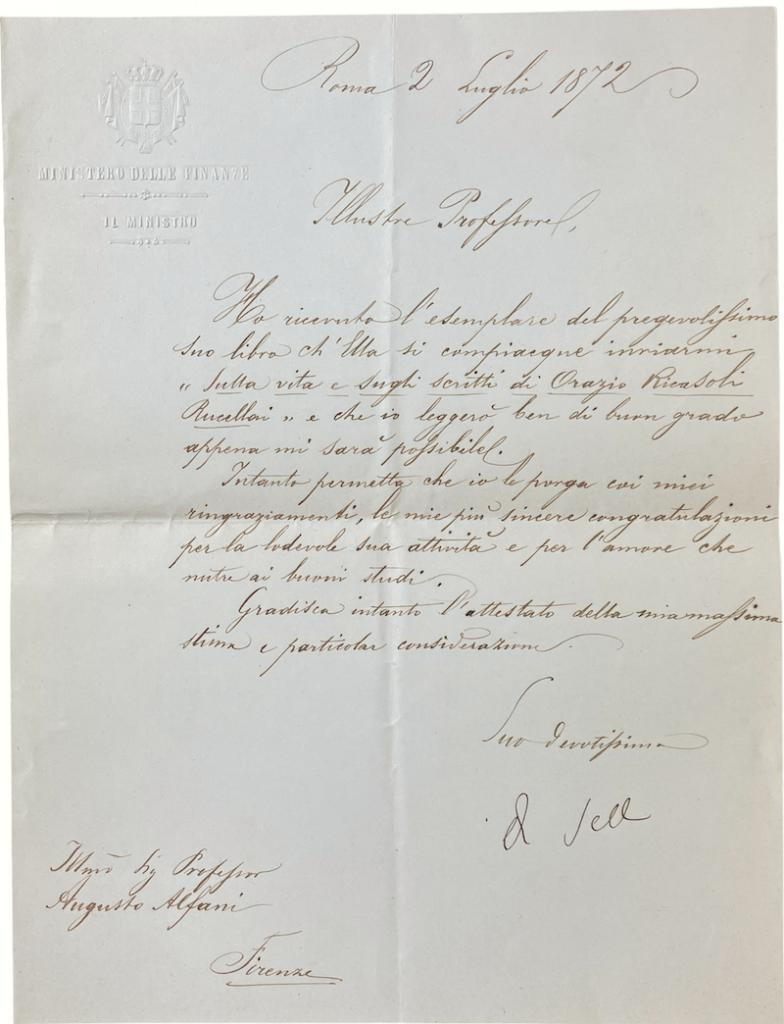 Roma 2 Luglio 1872
MINISTERO DELLE FINANZE
IL MINISTRO
Illustre Professore,
Ho ricevuto l'esemplare del pregevolissimo
suo libro ch'Ella si compiacque inviarmi
"Sulla vita e sugli scritti di Orazio Ricasoli
Rucellai" e che io leggerò ben di buon grado
appena mi sarà possibile.
Intanto permetta che io le porga coi miei
ringraziamenti, le mie più sincere congratulazioni
per la lodevole sua attività e per l'amore che
nutre ai buoni studi.
Gradisca intanto l'attestato della mia massima
stima e particolar considerazione.
Suo devotissimo
Q Sell
Sig Professor
Augusto Alfani
Firenze